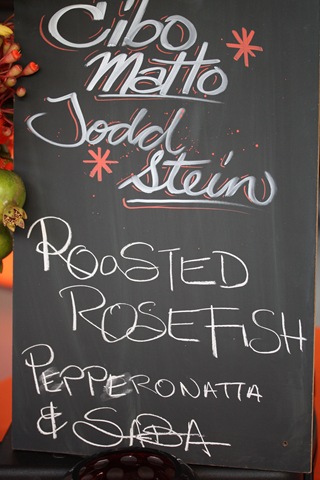 Cibo
Matto
Todd
Stein
ROASTED
ROSEFISH
PEPPERONATTA
& SABA